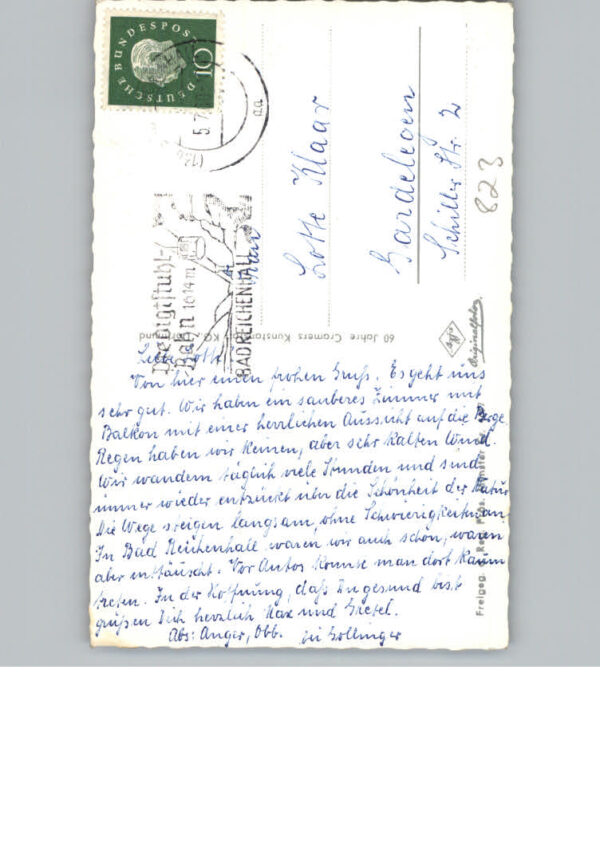 DEUTSCHE BUNDESPOST
10
Predigtstuhl-
Bahn 1614m
BAD REICHENHALL
aa
Lotte Klaar
Gardelegen
Schiller Str. 2
823
60 Jahre Cramers Kunstanstalt KG,
Agfa
Originalfoto
Freigeg. d. Reg. Präs. Münster
Liebe Lotte
Von hier einen frohen Gruß. Es geht uns
sehr gut. Wir haben ein sauberes Zimmer mit
Balkon mit einer herrlichen Aussicht auf die Berge.
Regen haben wir keinen, aber sehr kalten Wind.
Wir wandern täglich viele Stunden und sind
immer wieder entzückt über die Schönheit der Natur
Die Wege steigen langsam, ohne Schwierigkeiten an.
In Bad Reichenhall waren wir auch schon, waren
aber enttäuscht. Vor Autos konnte man dort kaum
treten. In der Hoffnung, daß Du gesund bist
grüßen Dich herzlich Max und Gretel.
Abs: Anger, Obb. bei Gollinger